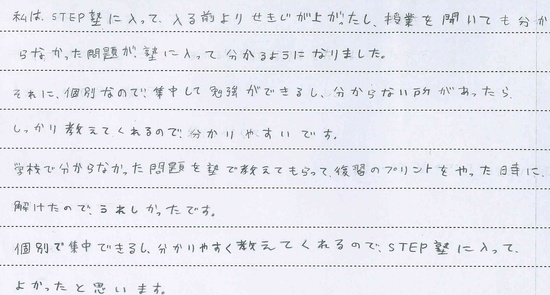 私は、STEP塾に入って、入る前よりせきじが上がったし、授業を聞いても分か
らなかった問題が、塾に入って分かるようになりました。
それに、個別なので、集中して勉強ができるし、分からない所があったら、
しっかり教えてくれるので、分かりやすいです。
学校で分からなかった問題を塾で教えてもらって、復習のプリントをやった時に、
解けたので、うれしかったです。
個別で集中できるし、分かりやすく教えてくれるので、STEP塾に入って、
よかったと思います。